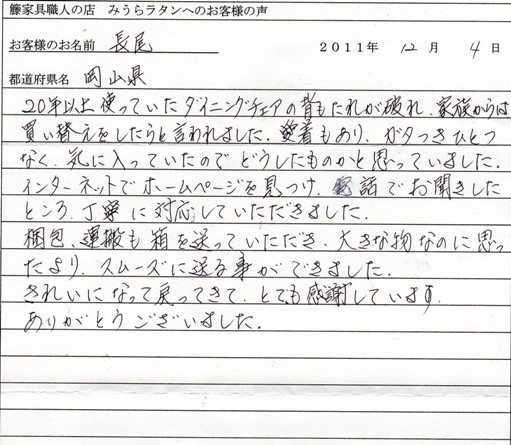 籐家具職人の店 みうらラタンへのお客様の声
お客様のお名前 長尾 2011年 12月 4日
都道府県名 岡山県
20年以上使っていたダイニングチェアの背もたれが破れ、家族からは
買い替えをしたらと言われました。愛着もあり、ガタつきひとつ
なく、気に入っていたのでどうしたものかと思っていました。
インターネットでホームページを見つけ、電話でお聞きした
ところ、丁寧に対応していただきました。
梱包、運搬も箱を送っていただき、大きな物なのに思っ
たより、スムーズに送る事ができました。
きれいになって戻ってきて、とても感謝しています。
ありがとうございました。